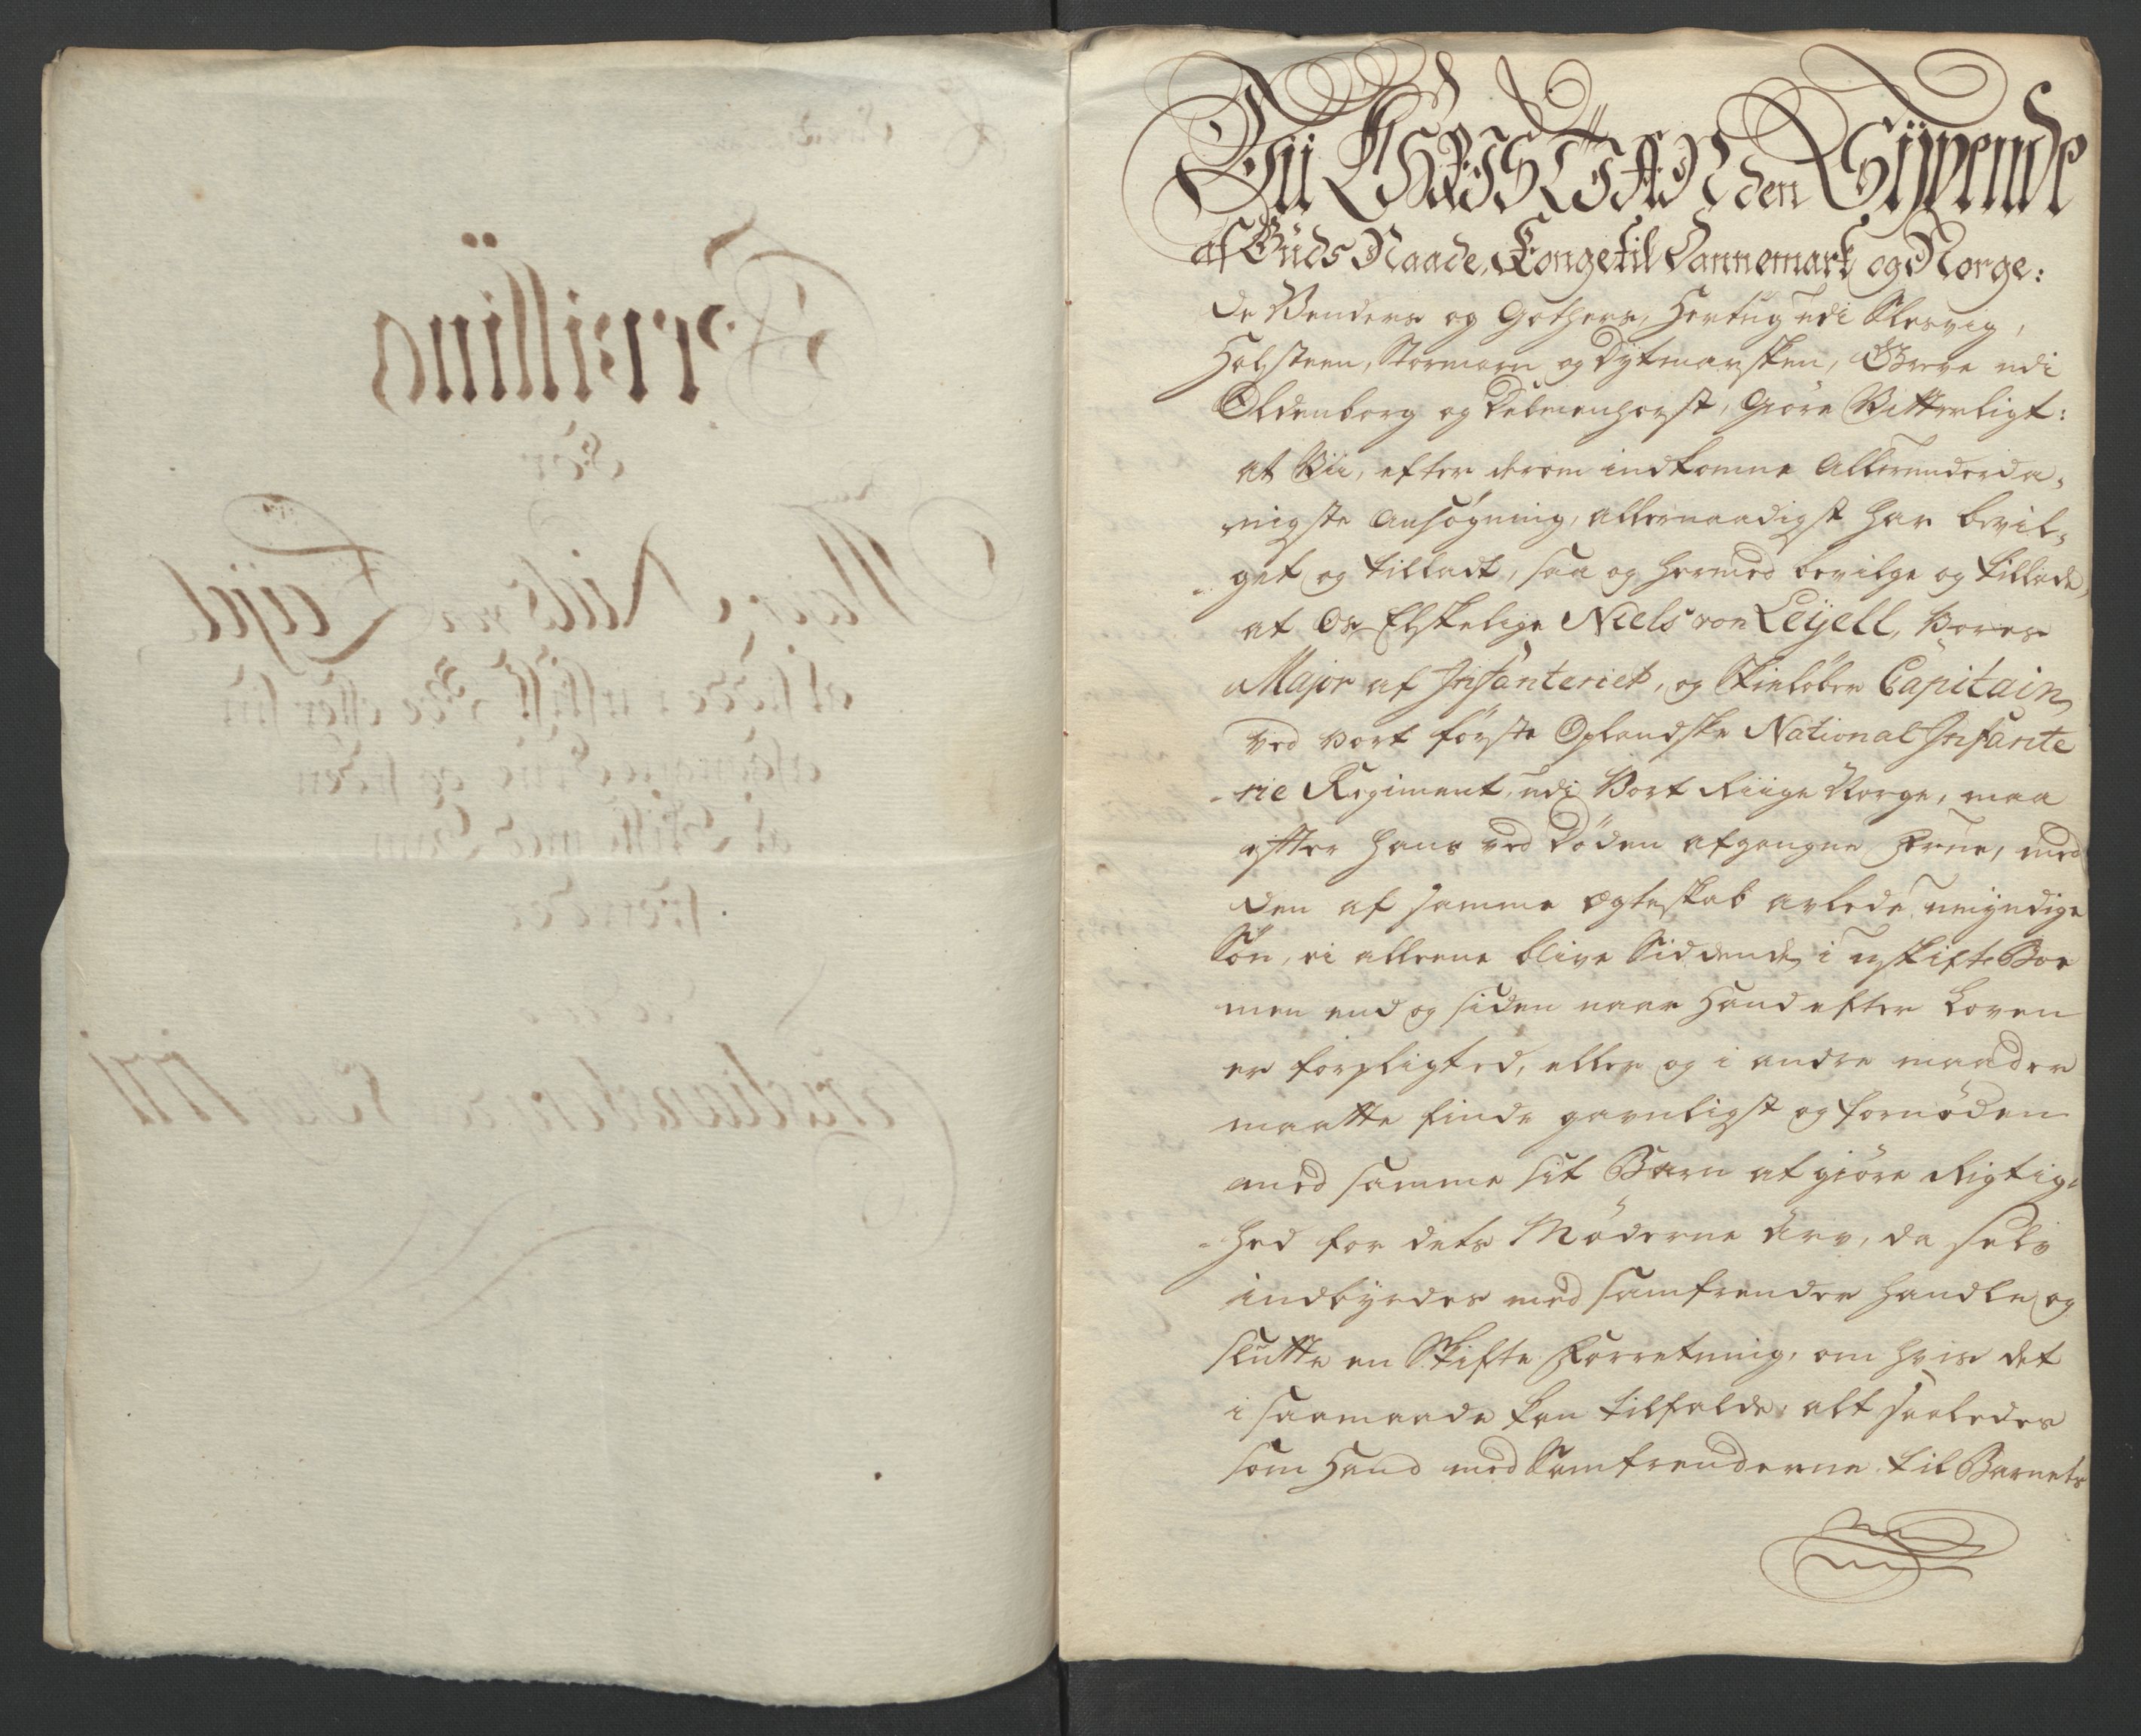 Vii CHRISTIAN den Syvende
af Guds Naade, Konge til Dannemark og Norge:
de Venders og Gothers, Hertug udi Slesvig,
Holsteen, Stormarn og Dytmarsken, Greve udi
Oldenborg og Delmenhorst, Giøre Vitterligt:
at Vii, efter derom indkomne Allerunderda-
nigste Ansøgning, allernaadigst har bevil-
get og tilladt, saa og hermed bevilge og tillade,
at Os Elskelige Niels von Leijell, Vores
Major af Infanteriet, og Skieløber Capitain
ved Vort første Oplandske National Infante
rie Regiment, udi Vort Riige Norge, maa
efter hans ved Døden afgangne Frue, med
den af samme Ægteskab avlede umyndige
Søn, ei alleene blive Siddende i uskifte Boe
men end og siden naar Hand efter Loven
er forpligted, eller og i andre maader
maatte finde gavnligst og fornøden
med samme sit Barn at giøre Rigtig-
hed for dets Møderne Arv, da selv
indbyrdes med samfrender handle og
slutte en Skifte Forretning, om hvis det
i saamaade kan tilfalde, alt saaledes
som Hand med Samfrenderne til Barnets